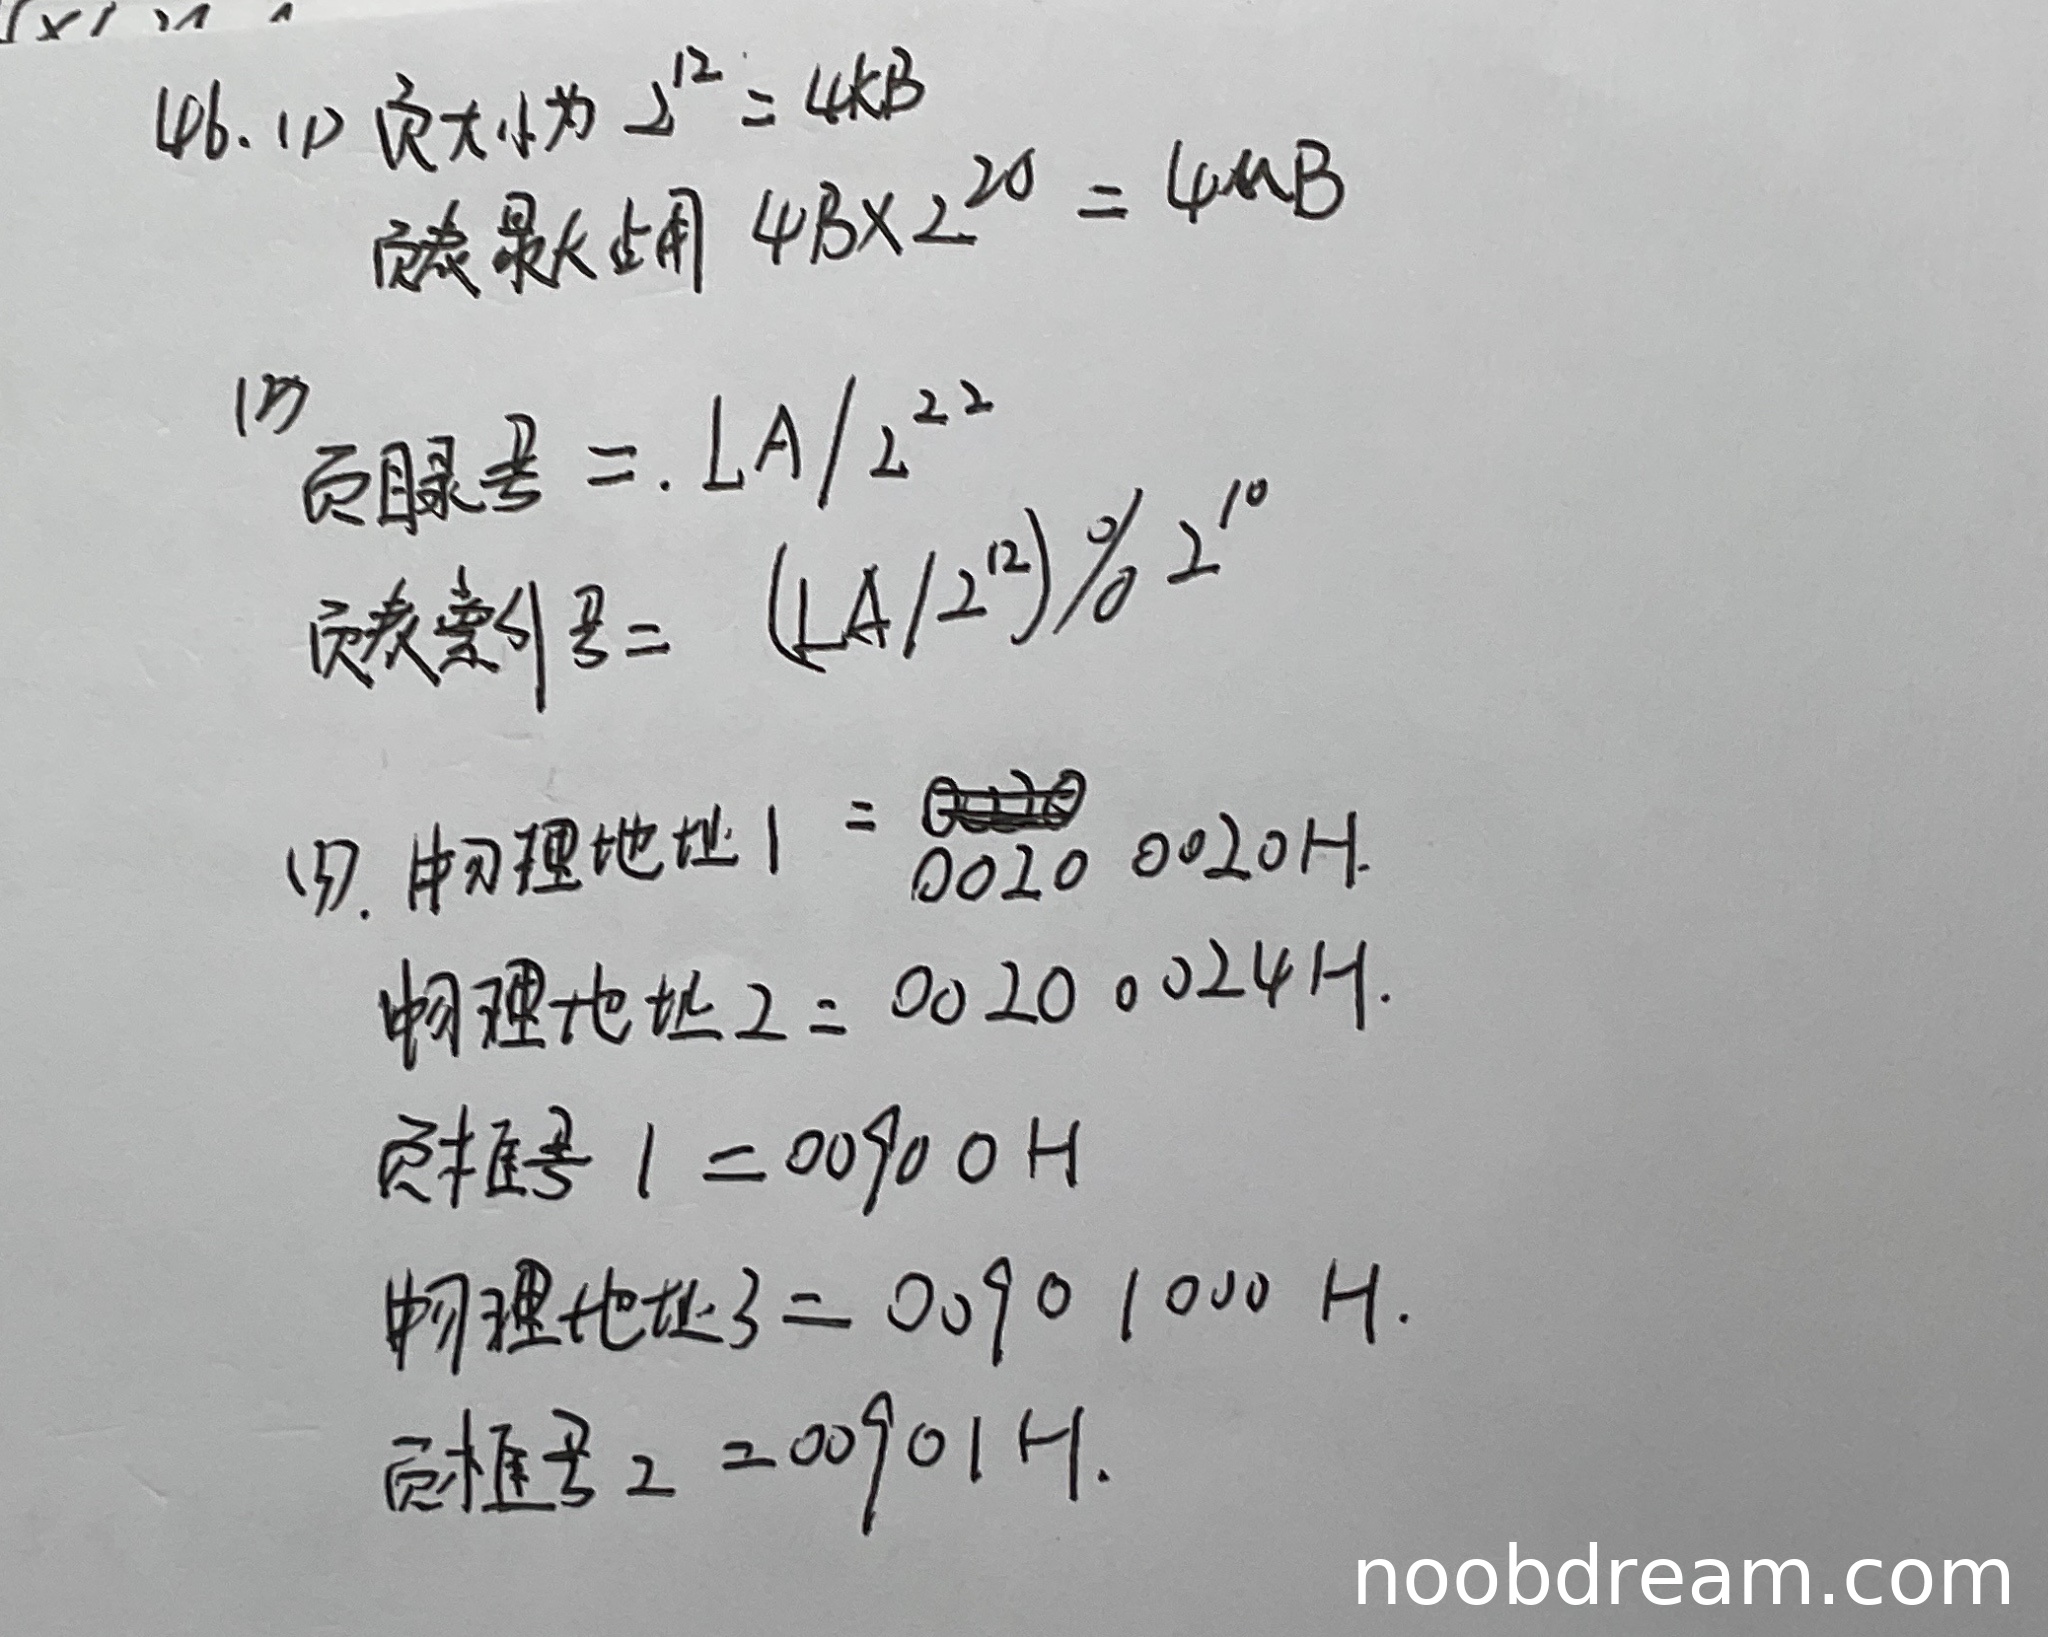 46. (1) 页大小为 2^12 = 4KB
页表最大占用 4B×2^20 = 4MB
(2)
页目录号 =. LA/2^22
页表索引号 = (LA/2^12)%2^10
(3). 物理地址1 = 0020 0020H.
物理地址2 = 0020 0024H.
页框号1 = 00900H
物理地址3 = 00901000H.
页框号2 = 00901H.
noobdream.com